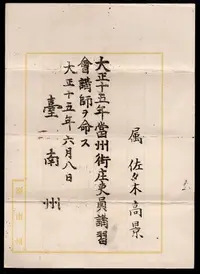 属 佐々木高景
大正十五年當州街庄吏員講習
會講師ヲ命ス
大正十五年六月八日
臺南州